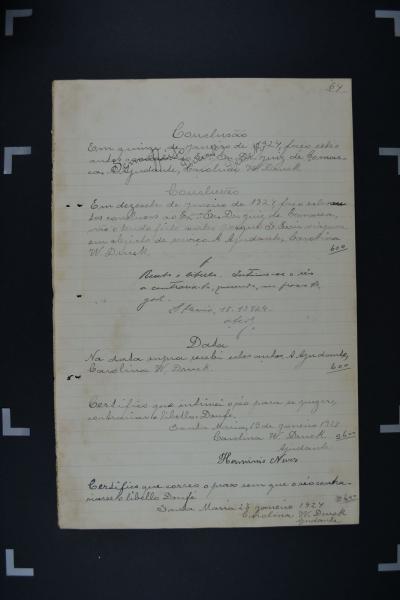 64
Conclusão
Em quinze de janeiro de 1924, faço estes
autos Ex.mo Sr. Dr. Juiz de Comar-
ca. A Ajudante, Carolina W. Druck
Conclusão
Em dezoito de janeiro de 1924 faço estes au-
tos conclusos ao Ex.mo Sr. Dr. Juiz de Comarca,
não o tendo feito antes porque S. Exa.
em objecto de serviço. A Ajudante, Carolina
W. Druck. 600
Recebo o libello. Intime-se o réo
a contraria-lo, querendo, no prazo le-
gal.
S. Maria, 18.1.1924.
Data
Na data supra recebi estes autos. A Ajudante,
Carolina W. Druck. 600
Certifico que intimei o réo para
contrariar o libello. Doufé.
Santa Maria, 18 de janeiro 1924
Carolina W. Druck
Ajudante
Herminio Neves
Certifico que correo o praso sem que o réo contra-
riasse o libello Doufé.
Santa Maria janeiro 1924
Carolina W. Druck
Ajudante